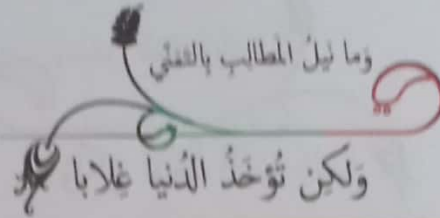 وَما نيلُ المَطالِبِ بِالتَمَنّي
وَلكِن تُؤخَذُ الدُنيا غِلابا